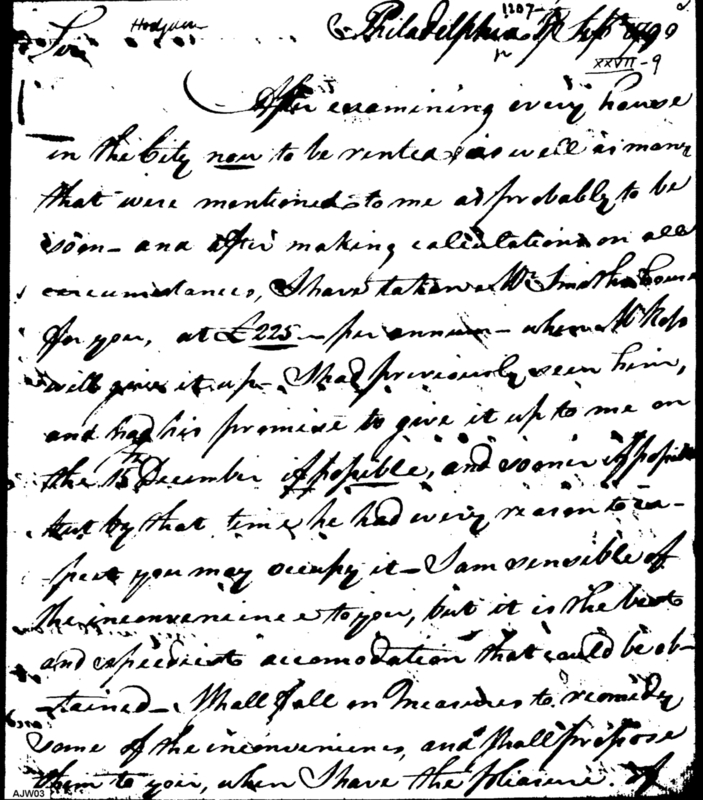 Hodgdon
1207
Sir
Philadelphia Sept 1790
XXVII-9
After examining every house
in the City now to be rented, as well as many
that were mentioned to me as probably to be
soon - and after making calculations on all
circumstances, I have taken Mr. Smiths house
for you, at £225 - per annum - when Mr Ross
will give it up - I had previously seen him,
and had his promise to give it up to me on
the 15th December if possible, and sooner if possible
but by that time he had every reason to ex-
-pect you may occupy it - I am sensible of
the inconvenience to you, but it is the best
and expedients accomodation that could be ob-
-tained - Shall fall on measures to remedy
some of the inconveniences, and shall propose
them to you, when I have the pleasure of
AJW03